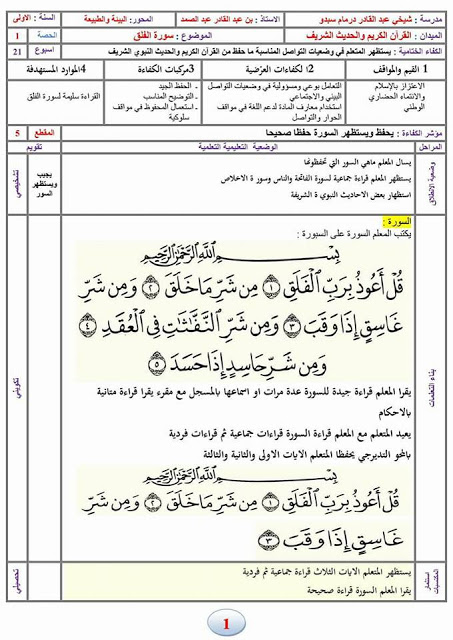 مدرسة : شيخي عبد القادر درمام سبدو
الاستاذ : بن عبد القادر عبد الصمد
المحور: البيئة والطبيعة
السنة : الاولى
الميدان : القرآن الكريم والحديث الشريف
الموضوع : سورة الفلق
الحصة
1
الكفاء الختامية : يستظهر المتعلم في وضعيات التواصل المناسبة ما حفظ من القرآن الكريم والحديث النبوي الشريف
اسبوع
21
1 القيم والمواقف
2ا لكفاءات العرضية
3مركبات الكفاءة
4الموارد المستهدفة
الاعتزاز بالإسلام
والانتماء الحضاري
الوطني
التعامل بوعي ومسؤولية في وضعيات التواصل
البيني والاجتماعي
استخدام معارف المادة لدعم اللغة في مواقف
الحوار والتواصل
- الحفظ الجيد
- التوضيح المناسب
- استعمال المحفوظ في مواقف
سلوكية
القراءة السليمة لسورة الفلق
مؤشر الكفاءة : يحفظ ويستظهر السورة حفظا صحيحا
المقطع
5
المراحل
الوضعية التعليمية التعلمية
تقويم
وضعية الانطلاق
يسال المعلم ماهي السور التي تحفظونها
يستظهر المعلم قراءة جماعية لسورة الفاتحة والناس وسور ة الاخلاص
استظهار بعض الاحاديث النبوي ة الشريفة
يجيب
ويستظهر
السور
تشخيصي
بناء التعلمات
السورة :
يكتب المعلم السورة على السبورة :
بِسْمِ اللَّهِ الرَّحْمَٰنِ الرَّحِيمِ
قُلْ أَعُوذُ بِرَبِّ الْفَلَقِ ۝١ مِن شَرِّ مَا خَلَقَ ۝٢ وَمِن شَرِّ
غَاسِقٍ إِذَا وَقَبَ ۝٣ وَمِن شَرِّ النَّفَّاثَاتِ فِي الْعُقَدِ ۝٤
وَمِن شَرِّ حَاسِدٍ إِذَا حَسَدَ ۝٥
يقرا المعلم قراءة جيدة للسورة عدة مرات او اسماعها بالمسجل مع مقرء يقرا قراءة متانية
بالاحكام
يعيد المتعلم مع المعلم قراءة السورة قراءات جماعية ثم قراءات فردية
بالمحو التدريجي يحفظا المتعلم الايات الاولى والثانية والثالثة
بِسْمِ اللَّهِ الرَّحْمَٰنِ الرَّحِيمِ
قُلْ أَعُوذُ بِرَبِّ الْفَلَقِ ۝١ مِن شَرِّ مَا خَلَقَ ۝٢ وَمِن شَرِّ
غَاسِقٍ إِذَا وَقَبَ ۝٣
تكويني
استثمار
المكتسبات
يستظهر المتعلم الايات الثلاث قراءة جماعية ثم فردية
يقرا المعلم السورة قراءة صحيحة
تحصيلي
1